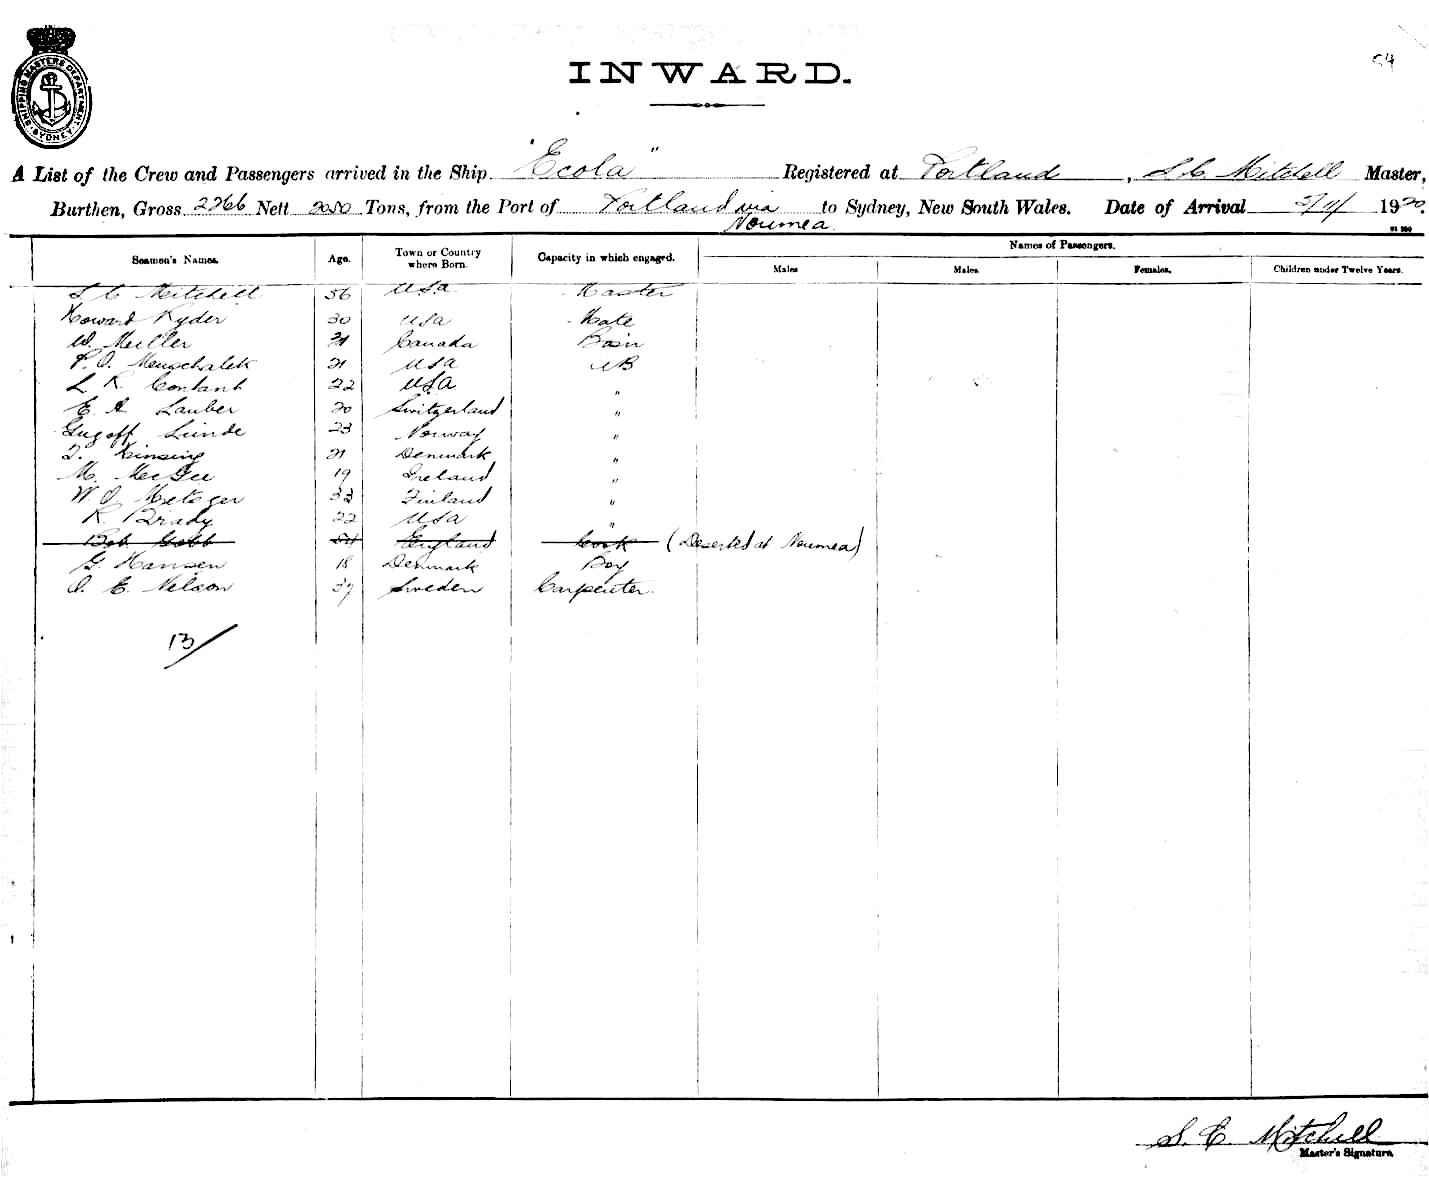 SHIPPING MASTERS DEPARTMENT. SYDNEY.
INWARD.
54
A List of the Crew and Passengers arrived in the Ship "Ecola" Registered at Portland, S C Mitchell Master,
Burthen, Gross 2266 Nett Tons, from the Port of Portland via Noumea to Sydney, New South Wales. Date of Arrival 3/11/ 1920.
Seamen's Names. Age. Town or Country where Born. Capacity in which engaged. Names of Passengers.
Males Males Females, Children under Twelve Years.
S C Mitchell 56 USA Master
Howard Ryder 30 USA Mate
W. Muller 21 Canada Bosn
P. O. 21 USA AB
L R Contant 22 USA "
E. A Lauber 20 Switzerland "
Lunde 23 Norway "
21 Denmark "
M. McGee 19 Ireland "
W O Metzger 33 Finland "
R. Brady 22 USA "
Bob England Cook (Deserted at Noumea)
G. Hansen 18 Denmark Boy
O. E. Nelson 37 Sweden Carpenter.
13/
S. C. Mitchell
Master's Signature.